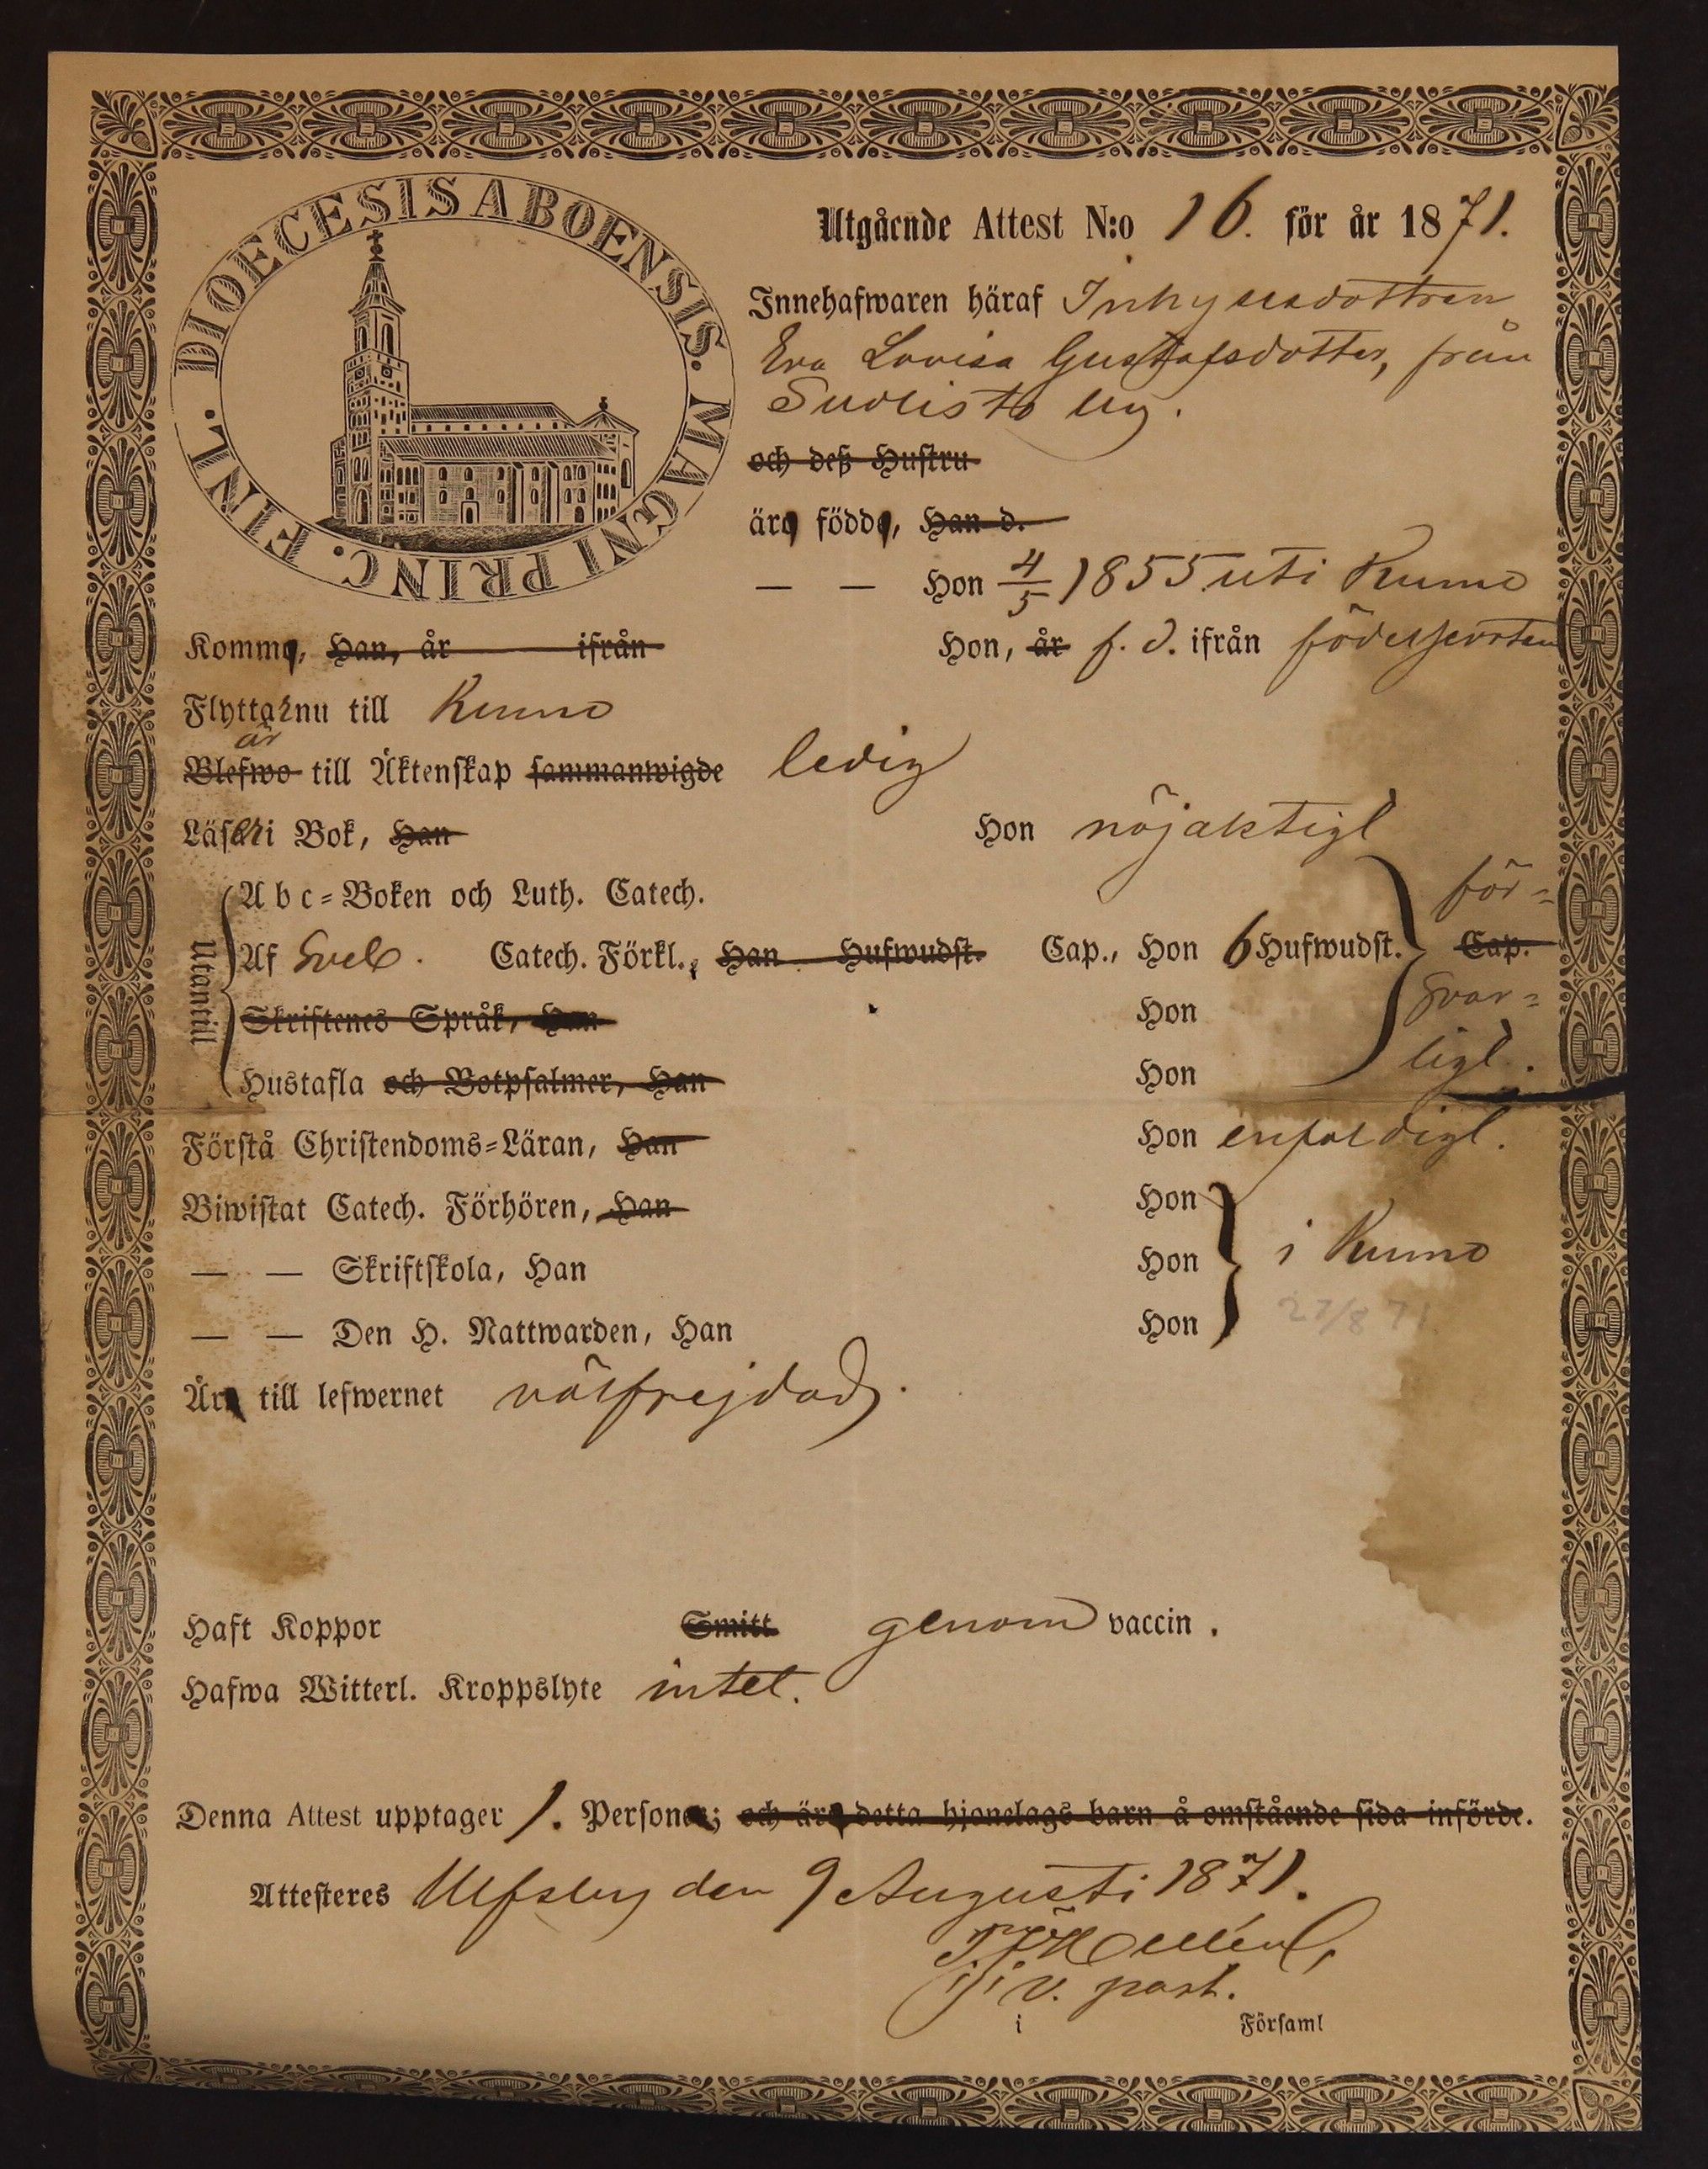 DIOECESIS ABOENSIS. MAGNI PRINC. FINL.
Utgående Attest N:o 16. för år 1871.
Innehafwaren häraf Inhysesdottren
Eva Lovisa Gustafsdotter, från
Suolisto by.
och deß Hustru
äro födde, Han d.
— — Hon 4/5 1855 uti Kumo
Komme, Han, år ifrån Hon, år f. d. ifrån födelseorten
Flyttar nu till Kumo
är
Blefwo till Äktenskap sammanwigde ledig
Läser i Bok, Han Hon nöjaktigl
Utantill
A b c=Boken och Luth. Catech. för=
Af Sveb. Catech. Förkl., Han Hufwudst. Cap., Hon 6 Hufwudst. Cap.
Skriftenes Språk, Han Hon svar=
Hustafla och Botpsalmer, Han Hon ligt.
Förstå Christendoms=Läran, Han Hon enfaldigt.
Biwistat Catech. Förhören, Han Hon
— — Skriftskola, Han Hon i Kumo
— — Den H. Nattwarden, Han Hon 27/8 71
Äro till lefwernet välfrejdad.
Haft Koppor Smitt genom vaccin.
Hafwa Witterl. Kroppslyte intet.
Denna Attest upptager 1. Personer; och äro detta hjonelags barn å omstående sida införde.
Attesteres Ulfsby den 9 Augusti 1871.
v. past.
i Församl